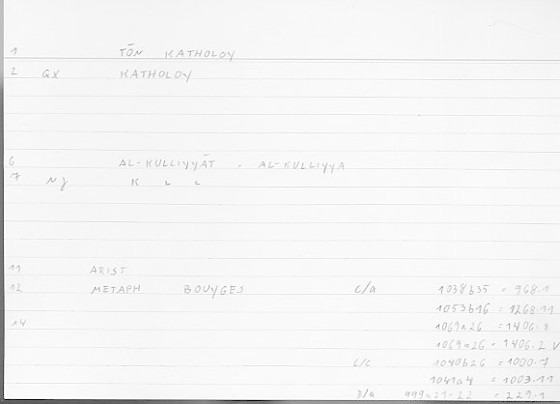 1 TŌN KATHOLOY
2 GX KATHOLOY
6 AL-KULLIYYĀT . AL-KULLIYYA
7 NJ K L L
11 ARIST
12 METAPH BOUYGES C/a 1038b35 = 968.1
1053b16 = 1268.11
14 1069a26 = 1406.1
1069a26 = 1406.2 V
C/C 1040b26 = 1000.7
1041a4 = 1003.11
D/a 999a21-22 = 229.1